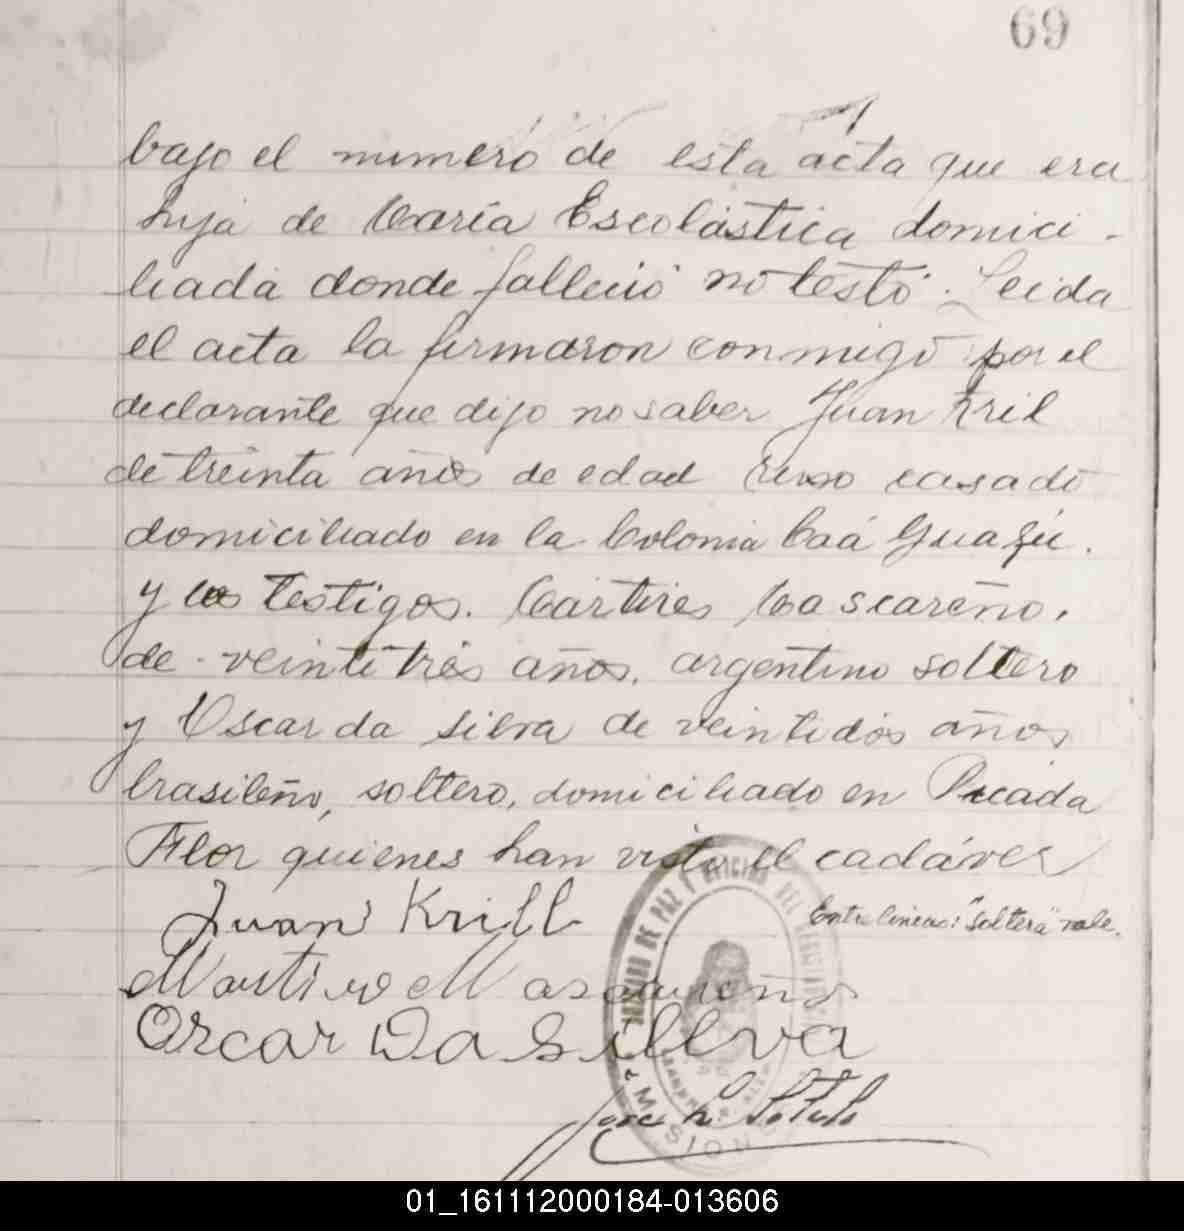 69
bajo el numero de esta acta que era
hija de María Escolástica domici-
liada donde falleció no testó. Leida
el acta la firmaron conmigo por el
declarante que dijo no saber Juan Kril
de treinta años de edad ruso casado
domiciliado en la Colonia Caá Guazú.
y los testigos. Martires Mascareño,
de veintitrés años, argentino soltero
y Oscar da Silva de veintidós años
brasileño, soltero, domiciliado en Picada
Flor quienes han visto el cadáver
Juan Krill
Entre lineas: "soltera" vale.
Mascareño
Oscar Da Sillva
Jose L. Sotelo
JUZGADO DE PAZ Y OFICINA DEL REGISTRO
MISIONES
01_161112000184-013606